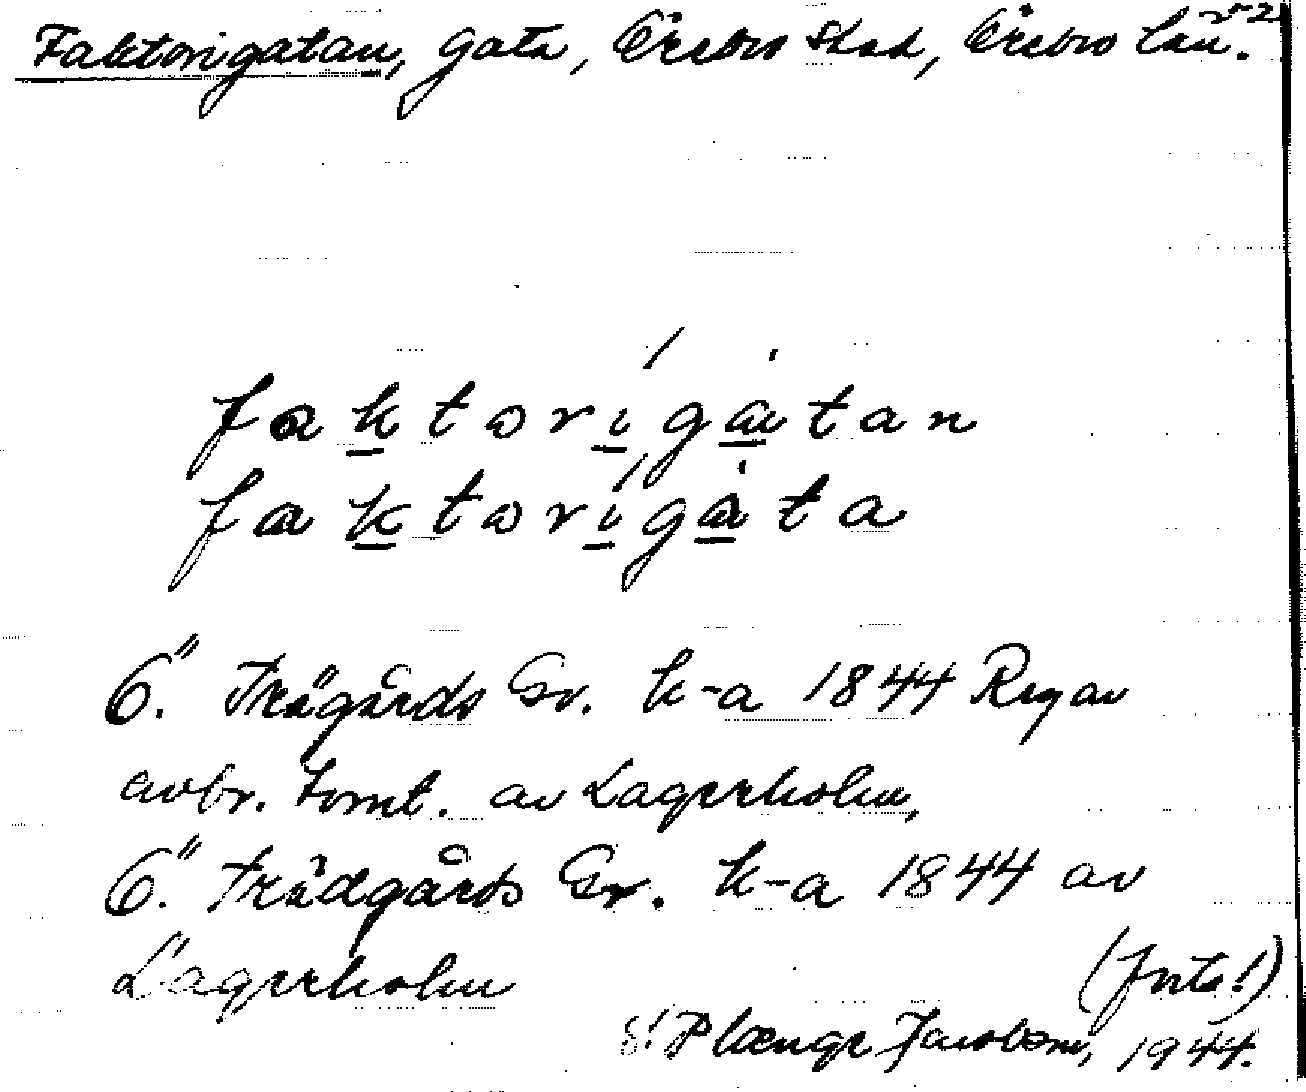 Faktorigatan, gata, Örebro stad, Örebro län.
faktorigatan
faktorigata
6." Trägårds Gr. k-a 1844 Reg av
avbr. tomt. av Lagerholm,
6." Trädgårds Gr. k-a 1844 av
Lagerholm
(forts!)
Plænge Jacobson, 1944.